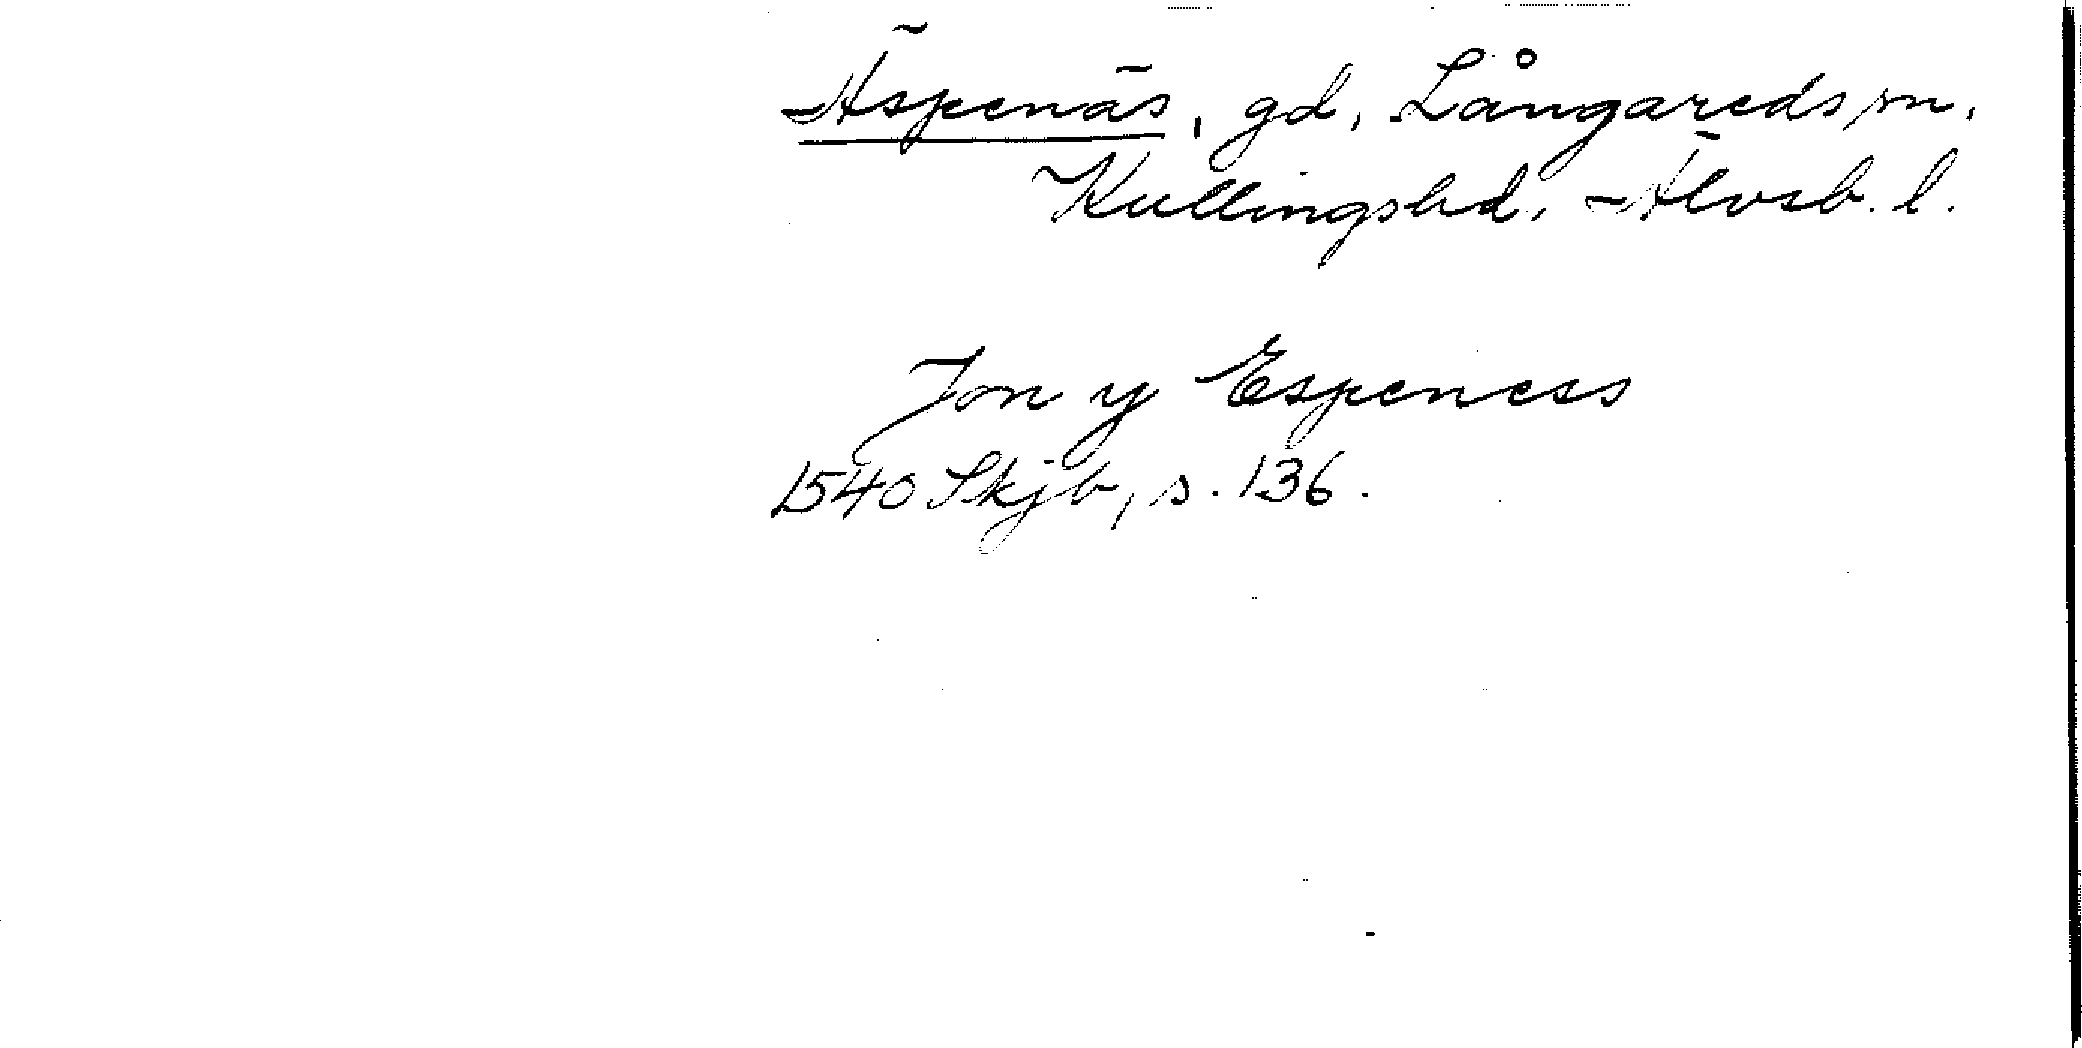 Äspenäs, gd, Långareds sn,
Kullingshd, Älvsb. l.
Jon y Espeness
1540 Skjb, s. 136.